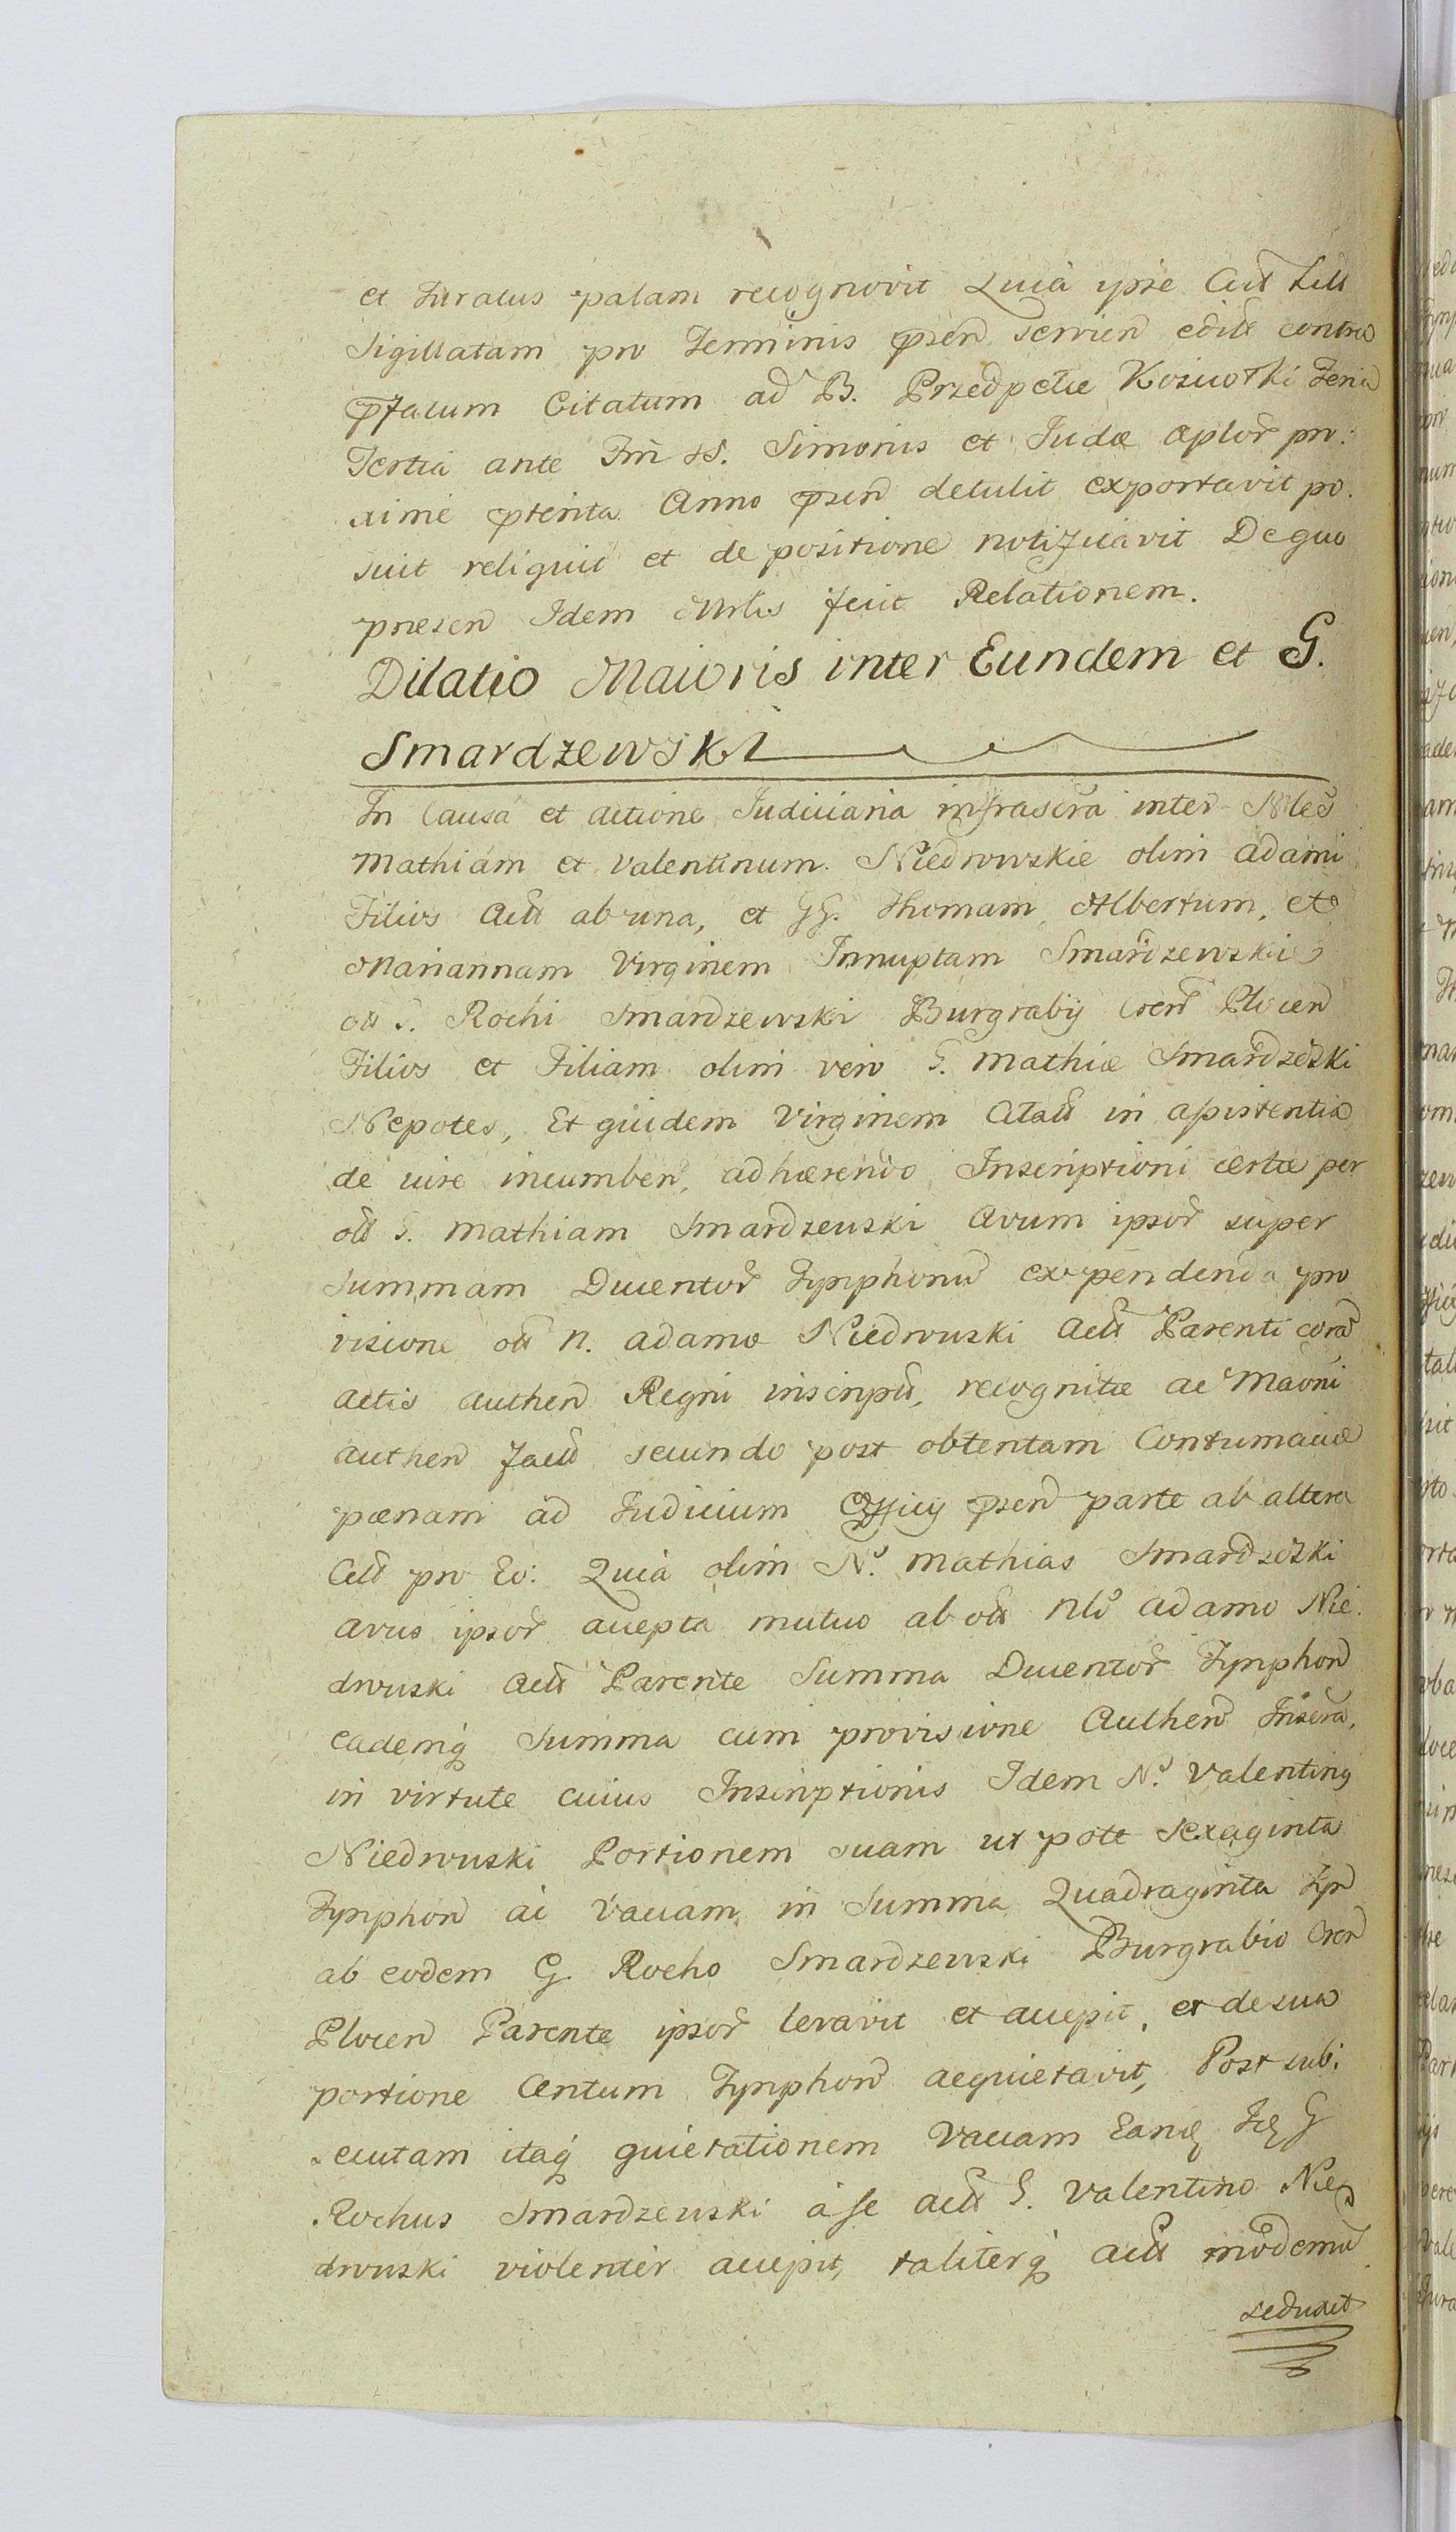 et Juratus palam recognovit Quia ipse Cit Litt
Sigillatam pro Terminis pñsen servien edită contra
pfatum Citatum ad B. Przedpełce Kozirotki Feria
Tertia ante Fm̃ SS. Simonis et Judæ Aplor̃ pro:
xime pterita Anno pñsen detulit exportavit po:
suit reliquit et de positione notificavit De quo
presen Idem Mrlis fecit Relationem.
Dilatio Maioris inter Eundem et G.
Smardzewski
In Causa et actione Judiciaria infrascra inter Nles
Mathiam et Valentinum Niedrowskie olim Adami
Filios Actt ab una, et GG. Thomam, Albertum, et
Mariannam Virginem Innuptam Smardzewskie
ott G. Rochi Smardzewski Burgrabij Cren Plocen
Filios et Filiam olim vero G. Mathiæ Smardzewski
Nepotes, Et quidem Virginem Citatt in assistentia
de iure incumben, adhærendo Inscriptioni certæ per
ott G. Mathiam Smardzewski Avum ipsor̃ super
Summam Ducentor̃ Tynphonũ expendenda pro
visione ott N. Adamo Niedrowski Actt Parenti corã
Actis Authen Regni inscripũ, recognitæ ac Maõni
Authen factt secundo post obtentam Contumaciæ
pænam ad Judicium Officij pñsen parte ab altera
Citt pro Eo: Quia olim N. Mathias Smardzewski
Avus ipsor̃ accepta mutuo ab ott Nlo Adamo Nie:
drowski Actt Parente Summa Ducentor̃ Tynphon
eademq̃ Summa cum provisione Authen Inscra,
in virtute cuius Inscriptionis Idem N. Valentinq
Niedrowski Portionem suam ut pote Sexaginta
Tynphon ac Vaccam in Summa Quadraginta Tyn
ab eodem G. Rocho Smardzewski Burgrabio Cren
Plocen Parente ipsor̃ levavit et accepit, et de sua
portione Centum Tynphon acquietavit, Post sub:
secutam itaq̃ quietationem Vaccam Eandẽ Idẽ G
Rochus Smardzewski à se actt G. Valentino Nie
drowski violenter accepit, taliterq̃ actt modernũ
seduxit